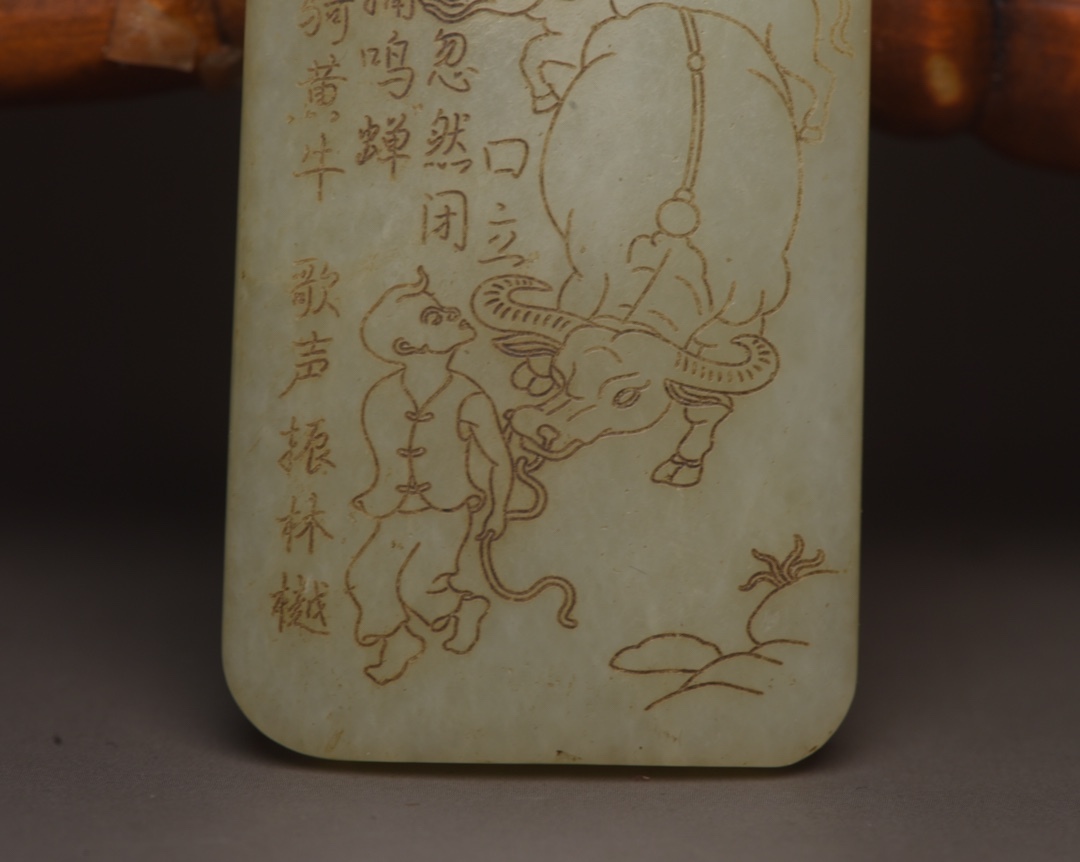 骑黄牛 歌声振林樾
捕鸣蝉
忽然闭
口立